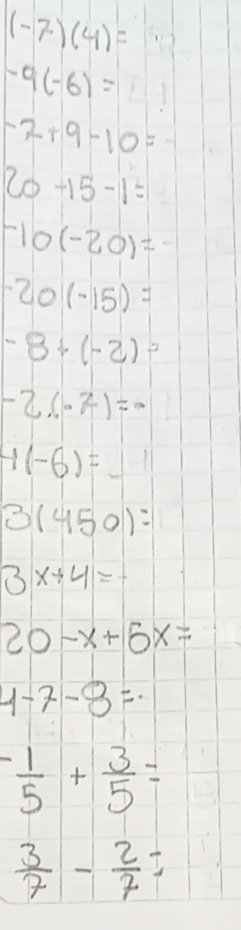 (-7)(4)=
-9(-6)=
-7+9-10=
20-15-1=
-10(-20)=
-20(-15)=
-8+(-2)=
-2.(-7)=
4(-6)=
3(450)=
3x+4=
20-x+5x=
4-7-8=
-1/5 + 3/5 =
3/7 - 2/7 =